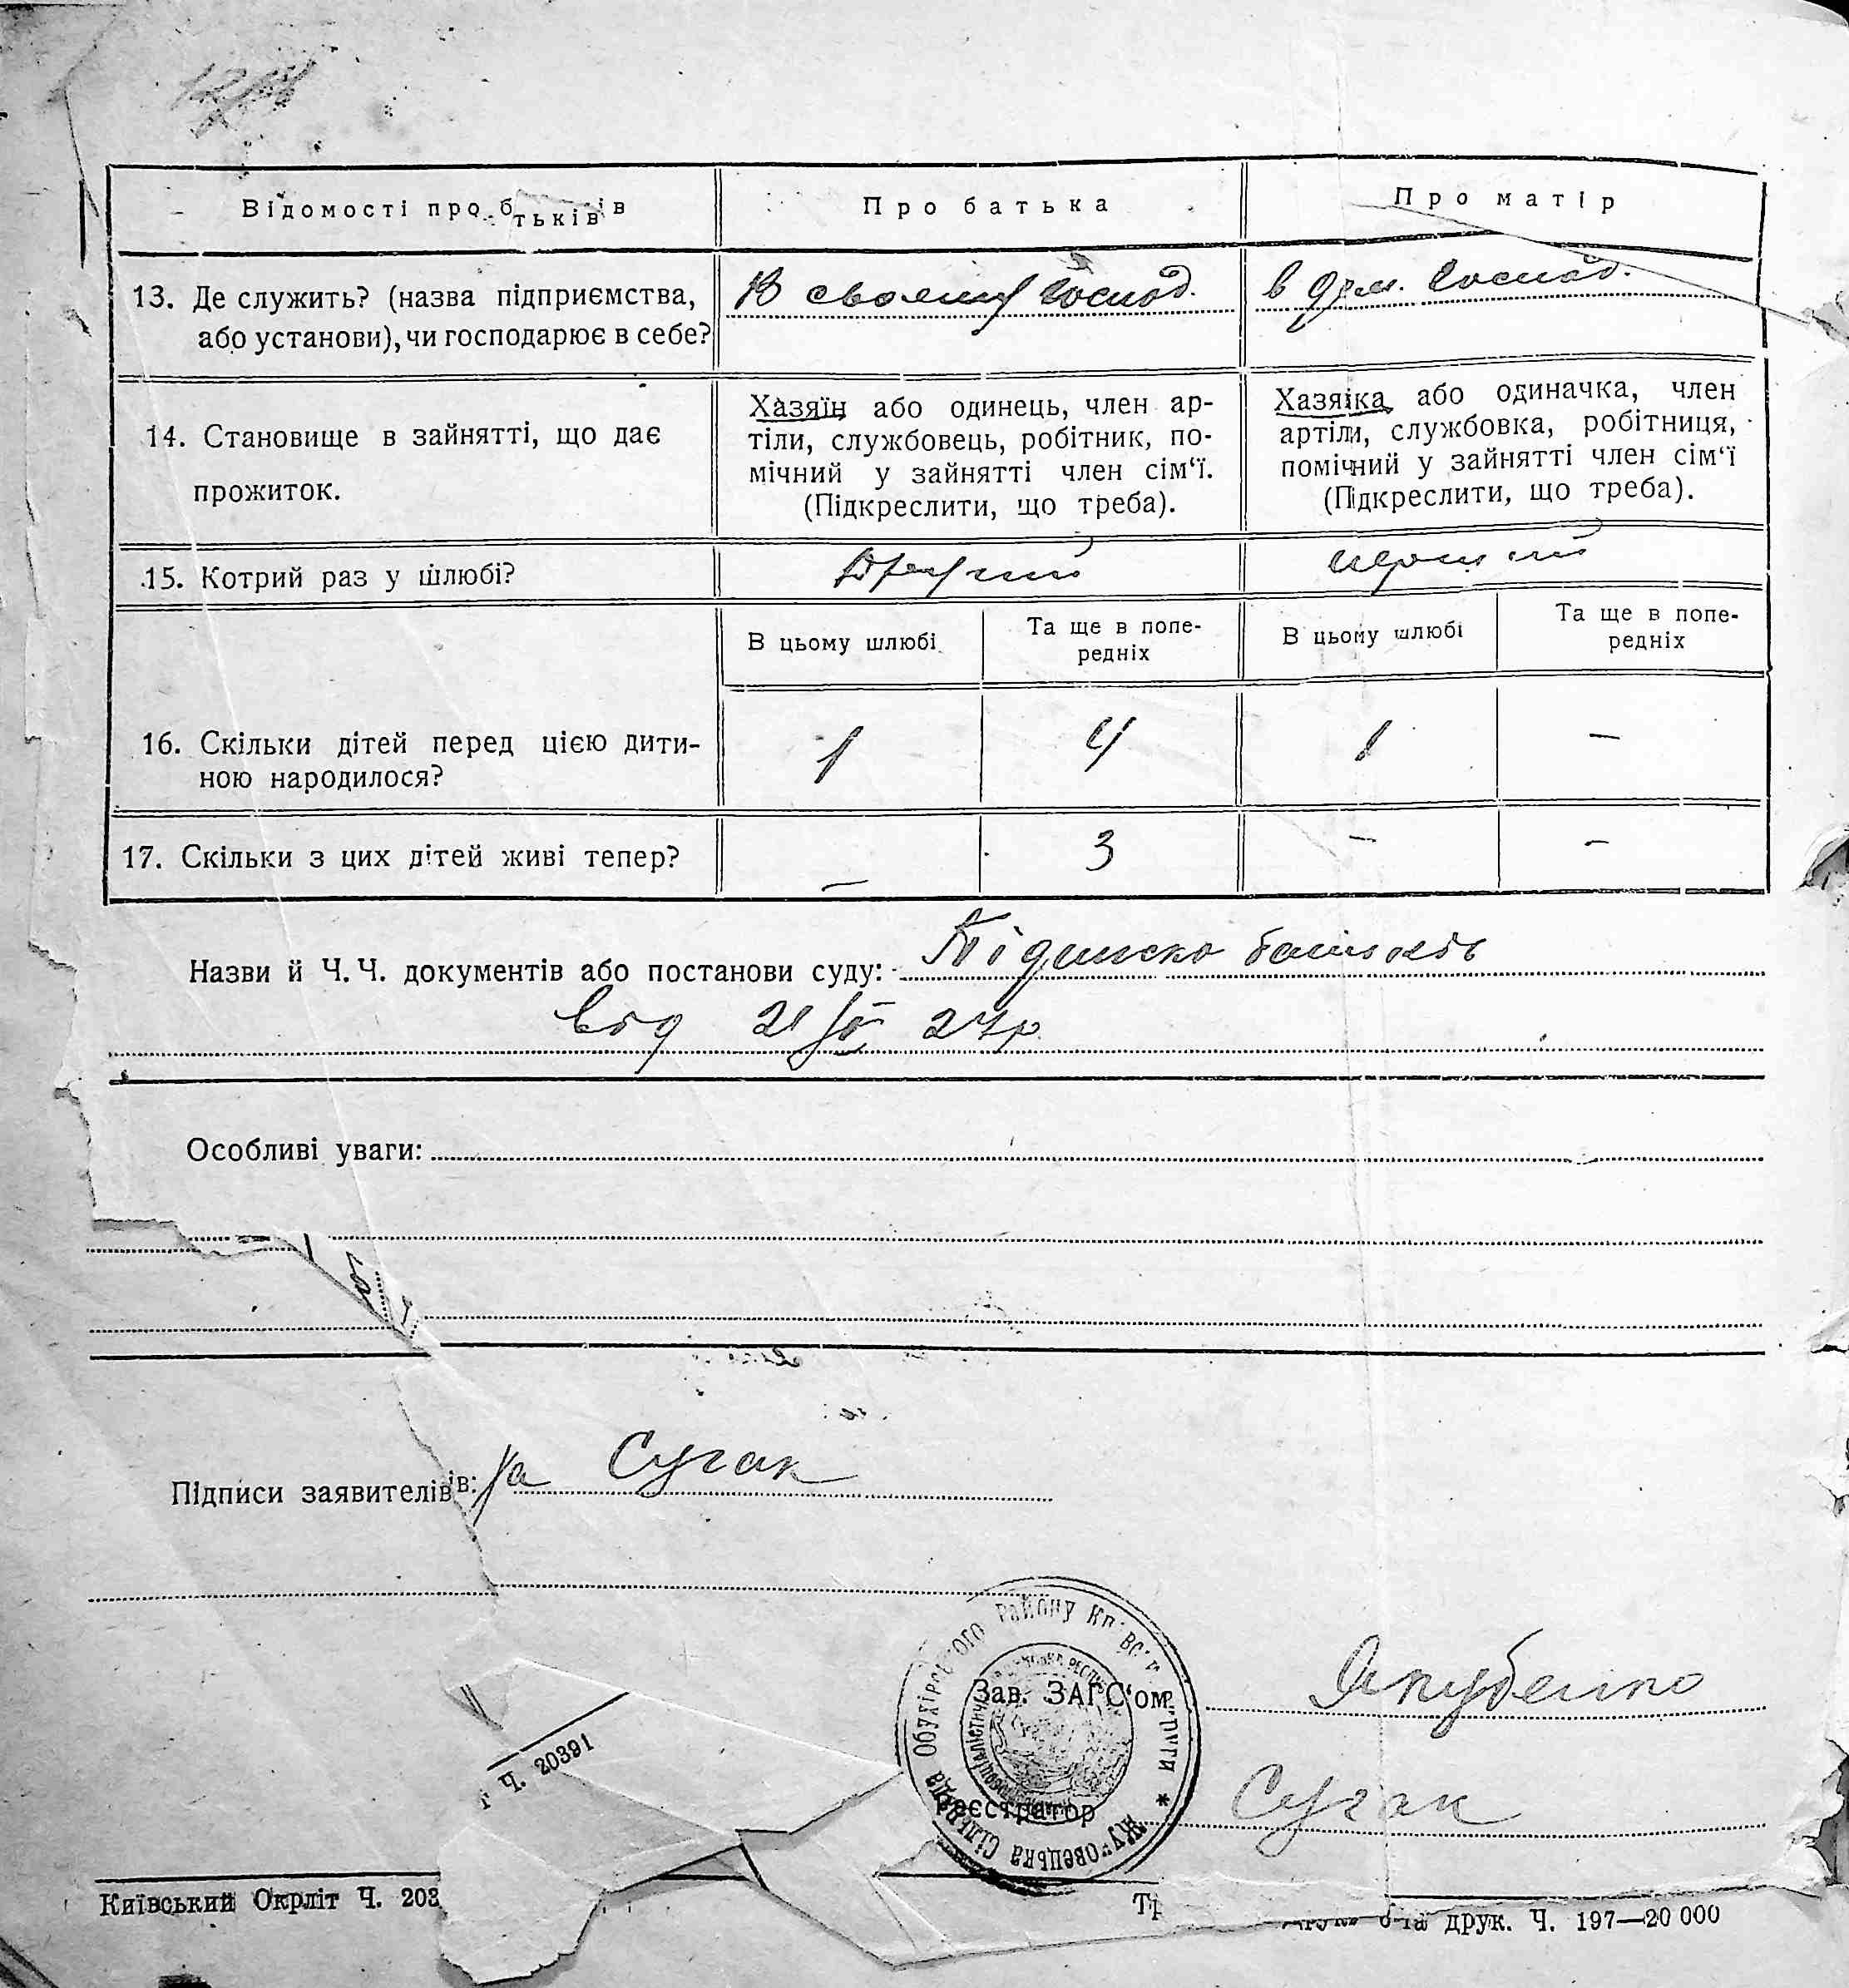 Відомості про батьків
Про батька
Про матір
13. Де служить? (назва підприємства,
або установи), чи господарює в себе?
В своему господ.
в дом. господ.
14. Становище в зайнятті, що дає
прожиток.
Хазяїн або одинець, член ар-
тіли, службовець, робітник, по-
мічний у зайнятті член сім'ї.
(Підкреслити, що треба).
Хазяїка або одиначка, член
артіли, службовка, робітниця,
помічний у зайнятті член сім'ї
(Підкреслити, що треба).
15. Котрий раз у шлюбі?
Другий
перший
В цьому шлюбі
Та ще в попе-
редніх
В цьому шлюбі
Та ще в попе-
редніх
16. Скільки дітей перед цією дити-
ною народилося?
1
4
1
—
17. Скільки з цих дітей живі тепер?
—
3
—
—
Назви й Ч.Ч. документів або постанови суду:
від 21 27р.
Особливі уваги:
Підписи заявителів: за Сугак
Обухівського району Київської округи * сільрада
Зав. ЗАГС'ом
Якубенко
Реєстратор
Сугак
Ч. 20391
Київський Окрліт Ч. 203
друк. Ч. 197—20 000